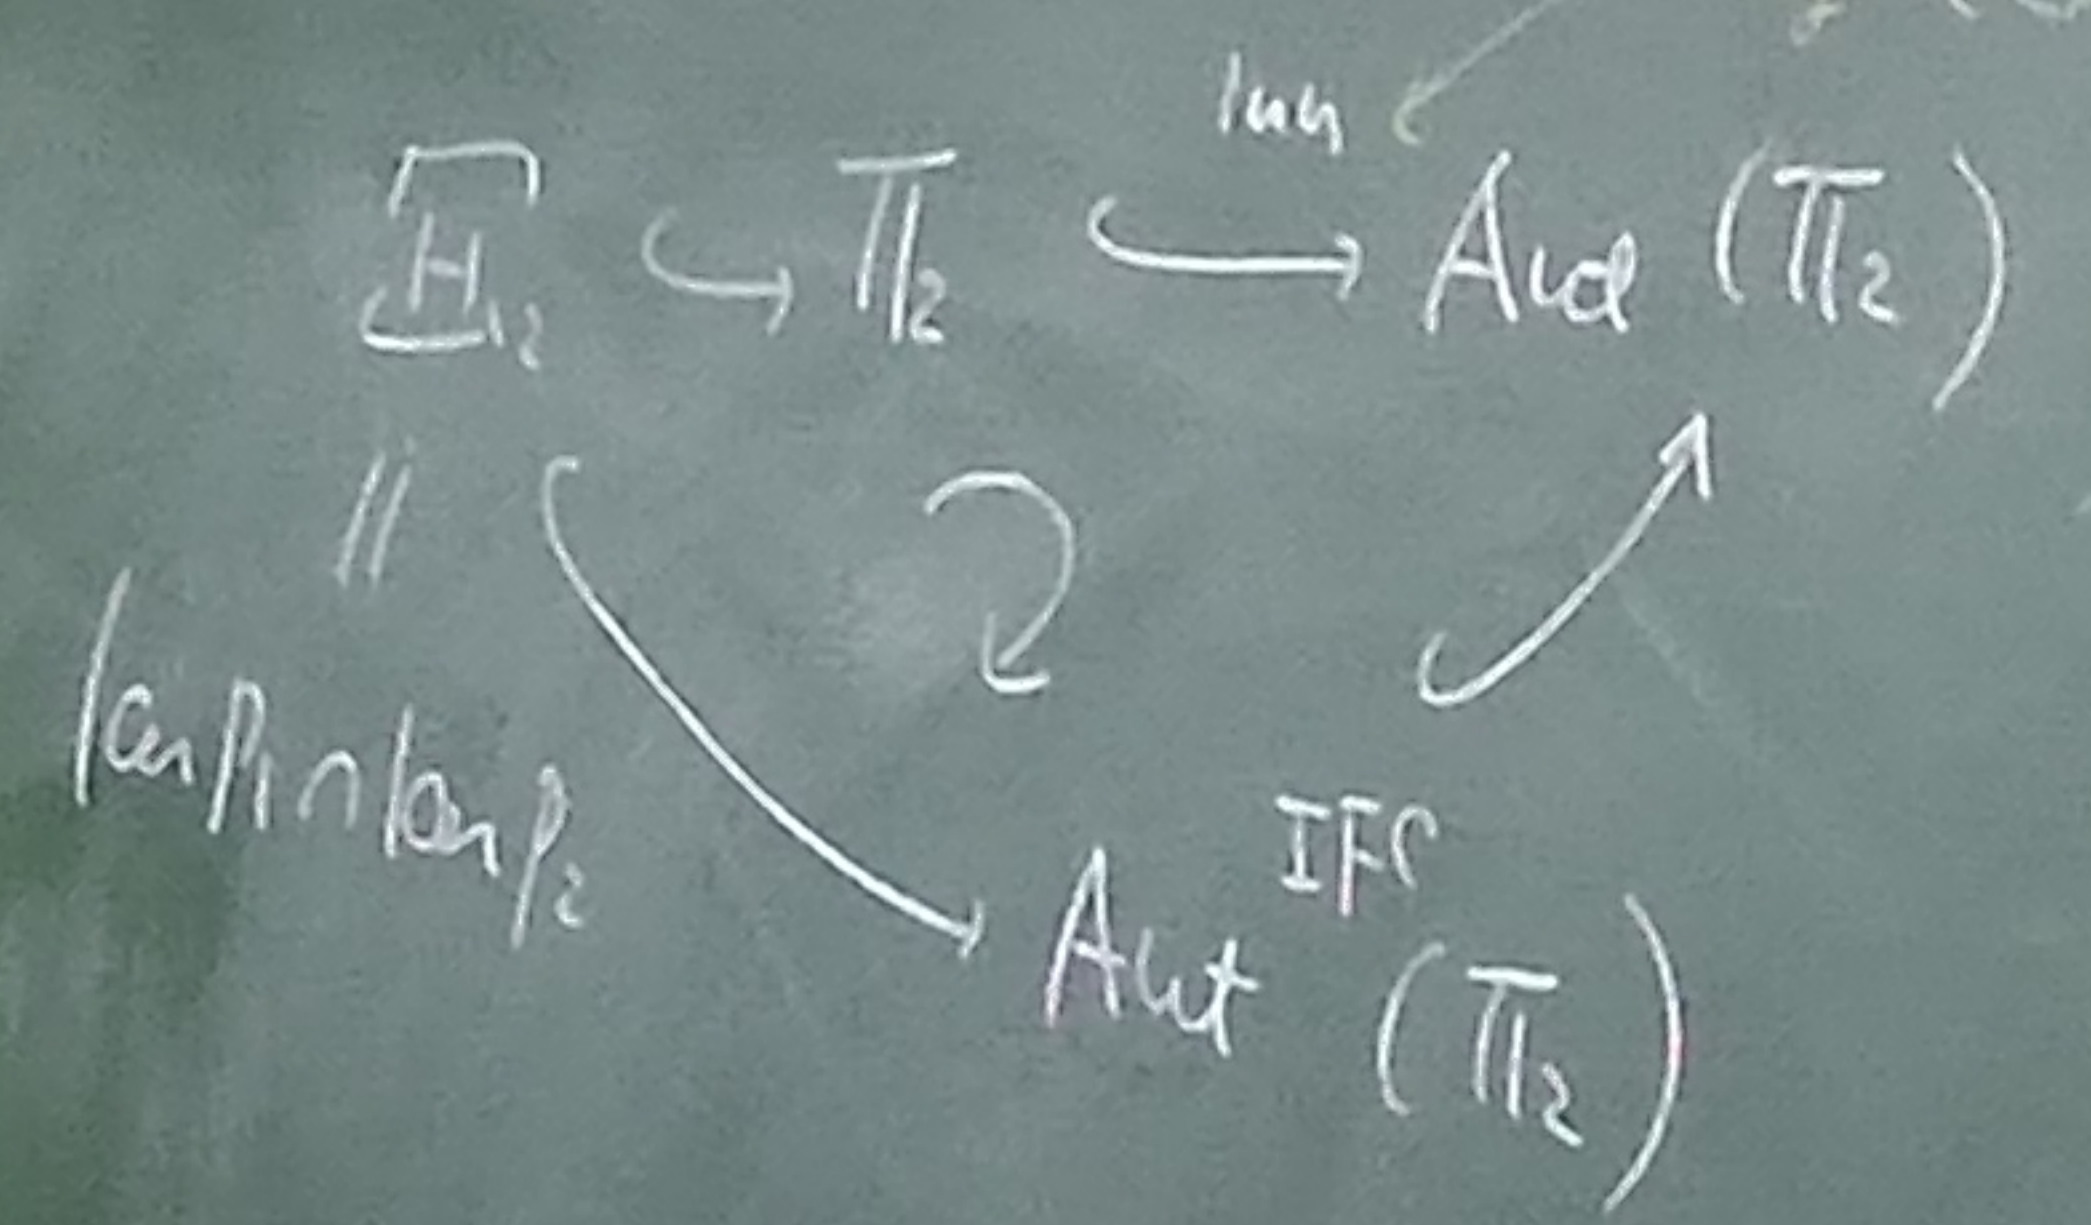 Inn
Ξ₂ ↪ Π₂ ↪ Aut (Π₂)
||
ker p₁ ∩ ker p₂
Aut^IFC (Π₂)